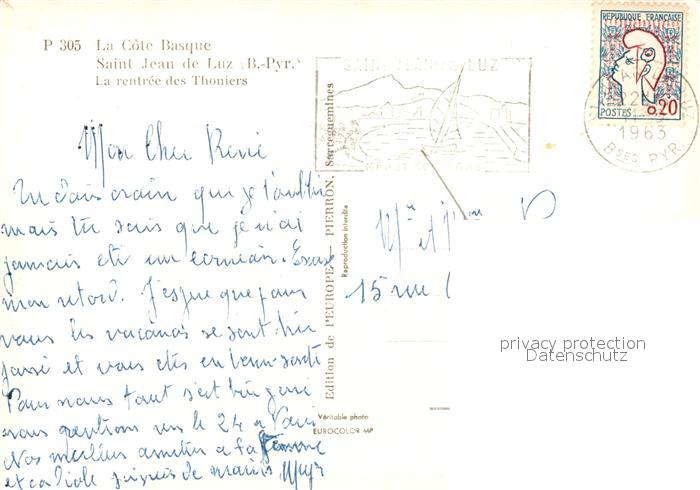 P 305 La Côte Basque
Saint Jean de Luz (B.-Pyr.)
La rentrée des Thoniers
SAINT-JEAN-DE-LUZ
REPUBLIQUE FRANÇAISE
POSTES 0.20
22
1963
BSES PYR.
Mon Cher René
Tu dois croire que je t'oublie
mais tu sais que je n'ai
jamais été un écrivain. Excuse
mon retard. J'espère que pour
vous les vacances se sont bien
passé et vous êtes en bonne santé
Pour nous tout s'est bien passé
nous rentrons vers le 24 a
Nos meilleurs amitiés a ta femme
et
Edition de l'EUROPE — PIERRON, Sarreguemines
Reproduction interdite
Véritable photo
EUROCOLOR MP
Mr et Mme
15 rue
privacy protection
Datenschutz